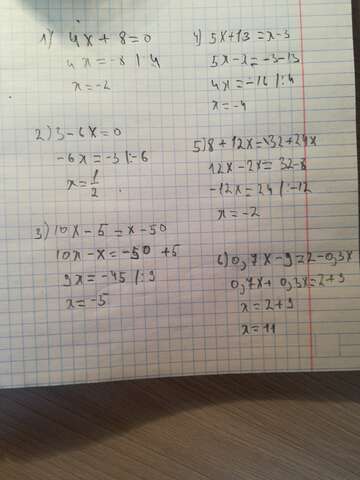 1) 4x + 8 = 0
4x = -8 | 4
x = -2
2) 3 - 6x = 0
-6x = -3 |: -6
x = 1/2
3) 10x - 5 = x - 50
10x - x = -50 + 5
9x = -45 |: 9
x = -5
4) 5x + 13 = x - 3
5x - x = -3 - 13
4x = -16 |: 4
x = -4
5) 8 + 12x = 32 + 24x
12x - 2x = 32 - 8
-12x = 24 |: -12
x = -2
6) 0,7x - 9 = 2 - 0,3x
0,7x + 0,3x = 2 + 9
x = 2 + 9
x = 11